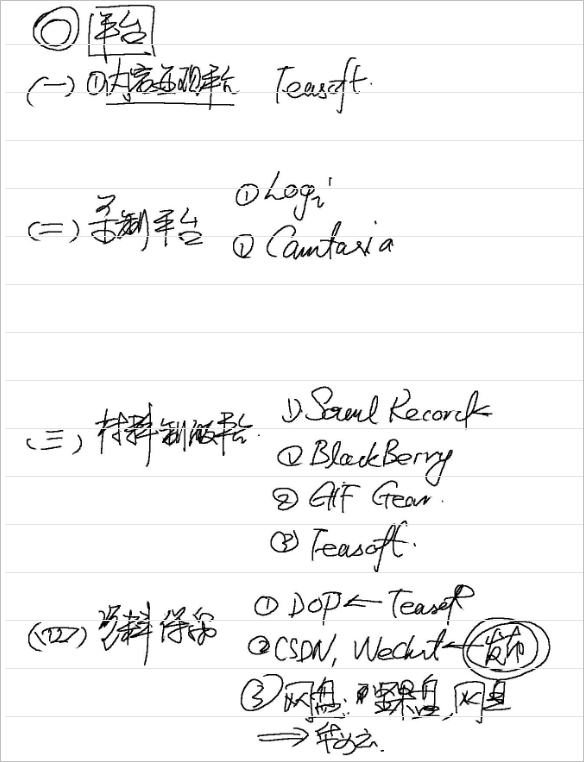 〇 平台
(一) ①内容呈现平台 Teasoft.
(二) 录制平台 ①Logi
① Camtasia
(三) 材料制版平台.
①BlackBerry
② GIF Gear.
③ Teasoft.
(四) 资料保留 ① DOP ← Teasoft
②CSDN, Wechat ← 发布
③ 网盘: 坚果盘, 网盘
⇒